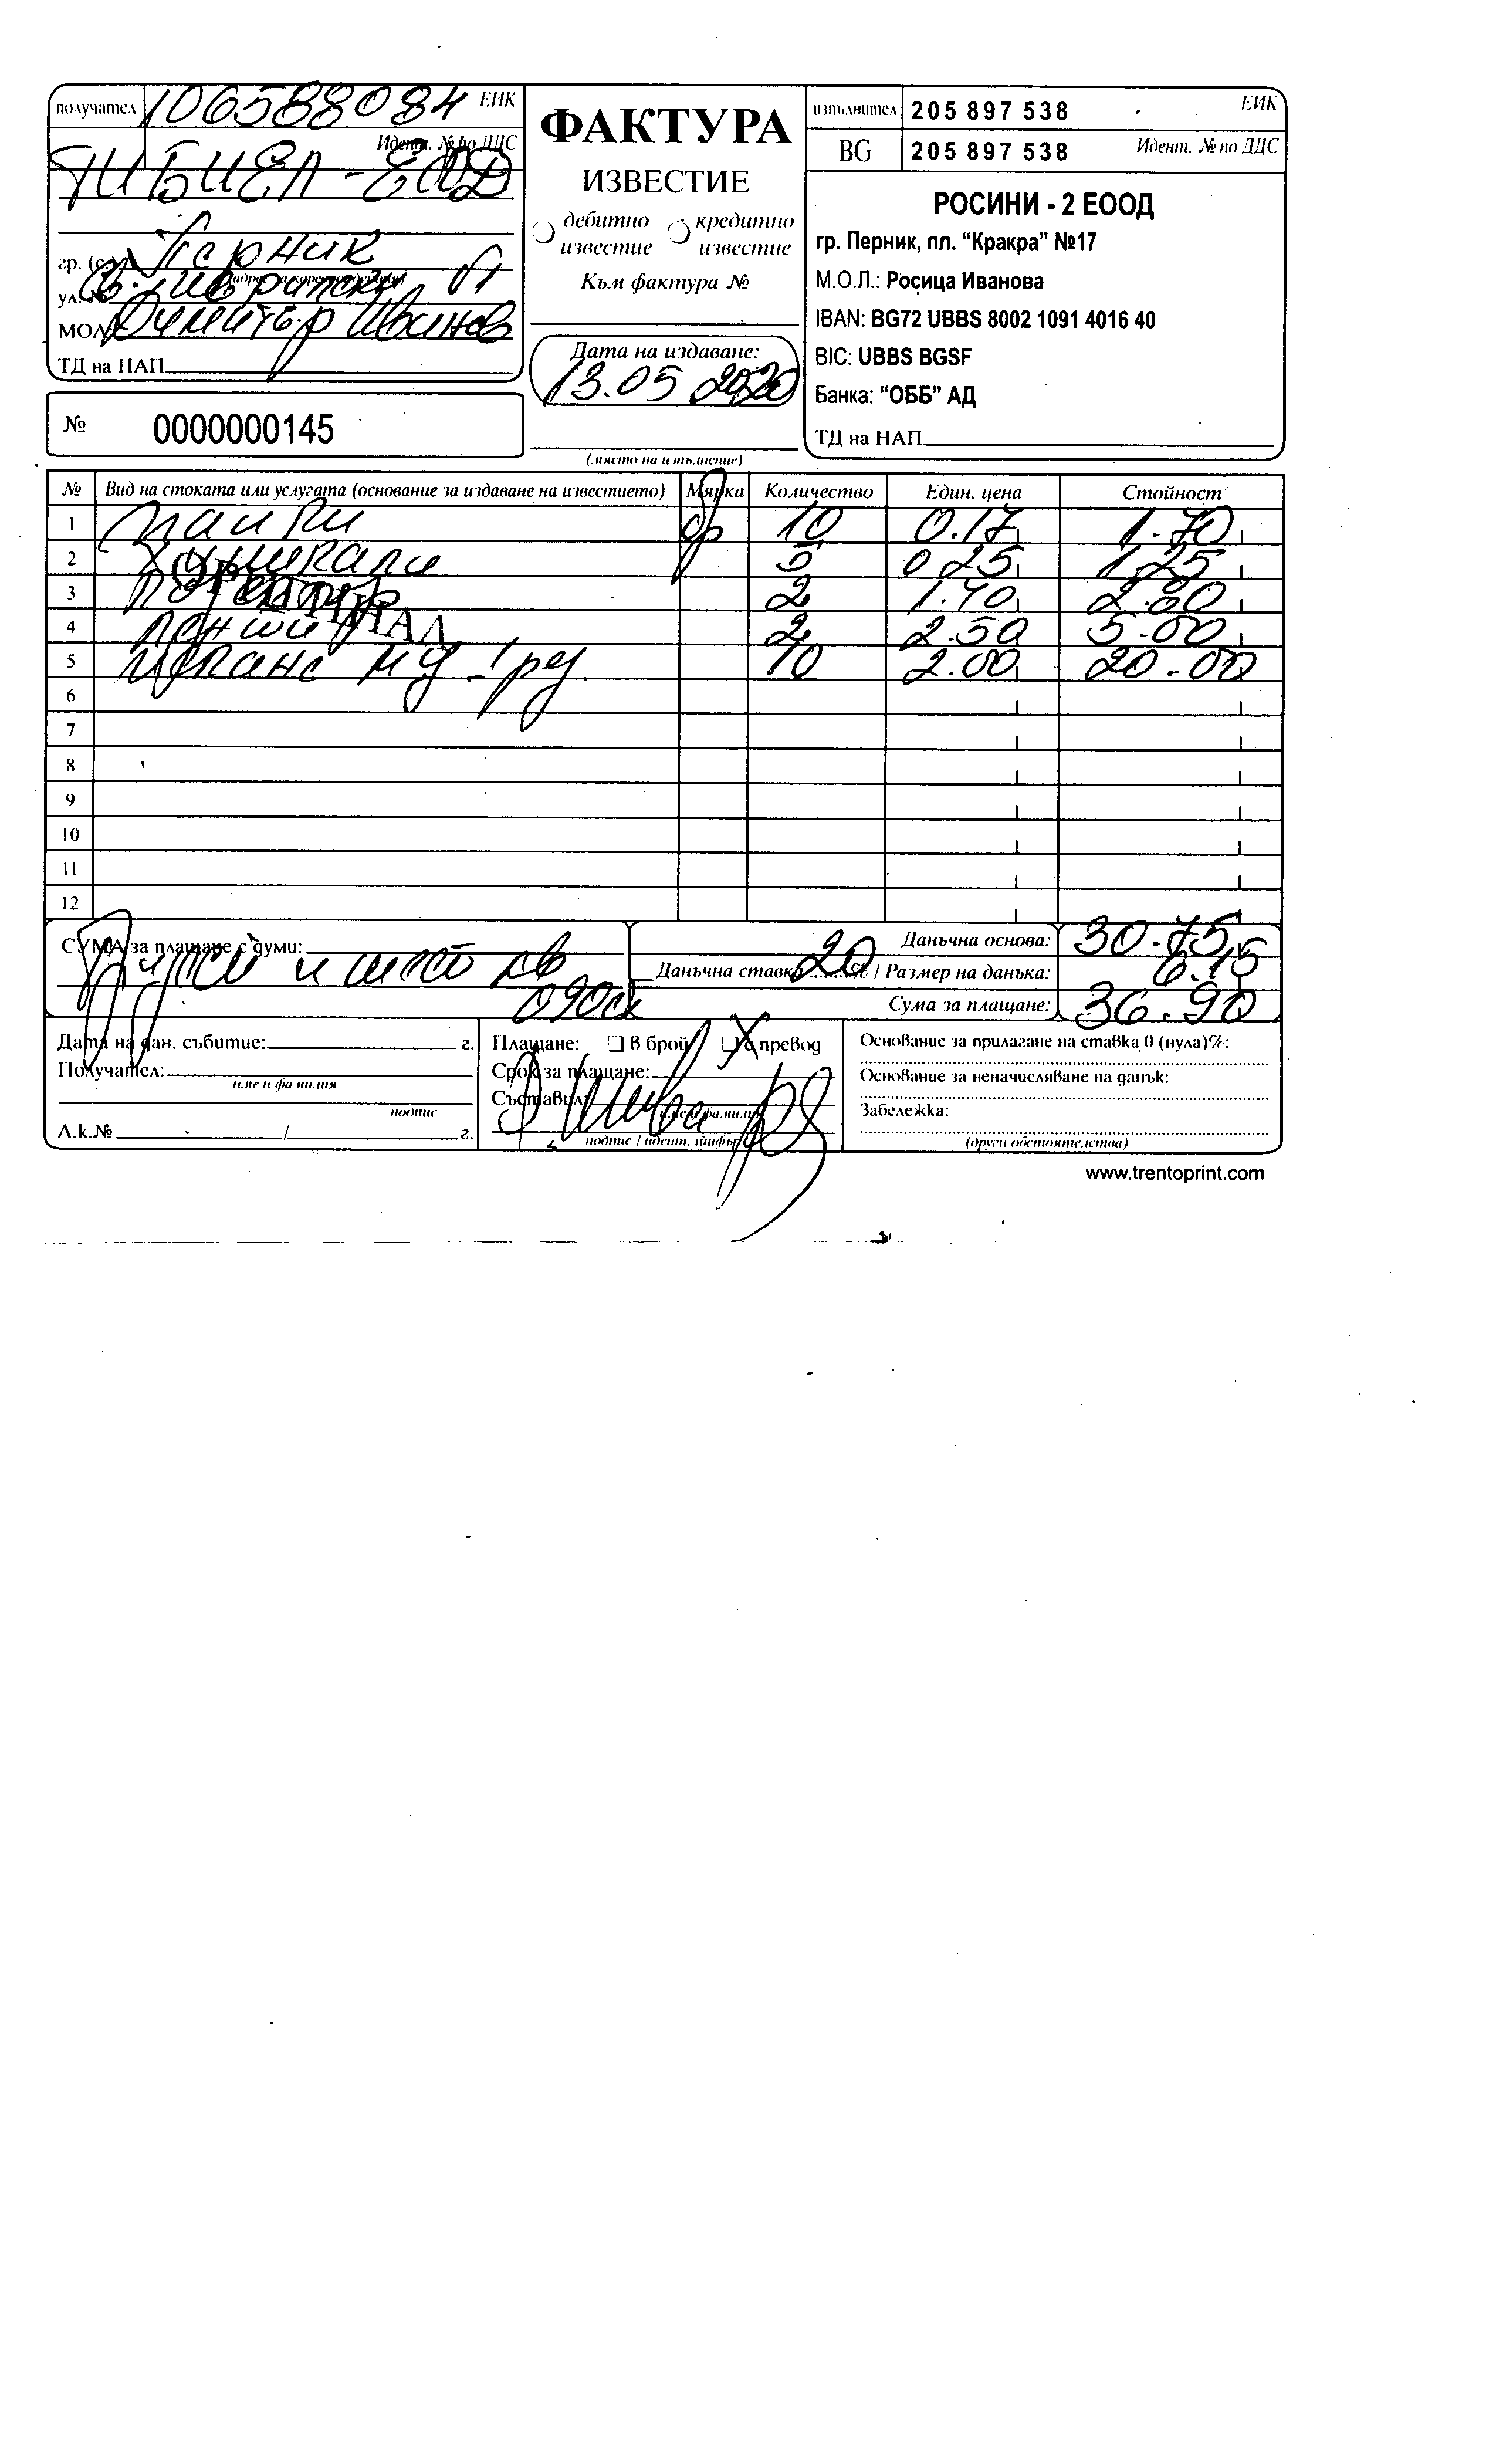 получател 106588084 ЕИК
Идент. № по ДДС
ТИБИЕЛ - ЕООД
гр. (с.) Перник
(адрес за кореспонденция)
ул. №
МОЛ Димитър Иванов
ТД на НАП
№ 0000000145
ФАКТУРА
ИЗВЕСТИЕ
дебитно известие
кредитно известие
Към фактура №
Дата на издаване:
13.05 2020
(място на изпълнение)
изпълнител 205 897 538 ЕИК
BG 205 897 538 Идент. № по ДДС
РОСИНИ - 2 ЕООД
гр. Перник, пл. “Кракра” №17
М.О.Л.: Росица Иванова
IBAN: BG72 UBBS 8002 1091 4016 40
BIC: UBBS BGSF
Банка: “ОББ” АД
ТД на НАП
№ Вид на стоката или услугата (основание за издаване на известието) Мярка Количество Един. цена Стойност
1 папки бр 10 0.17 1.70
2 Химикали 5 0 25 1,25
3 2 1.40 2.80
ОРИГИНАЛ
4 2 2.50 5.00
5 10 2.00 20.00
6
7
8
9
10
11
12
СУМА за плащане с думи:
и шест лв
090ст
Данъчна основа: 30.75
Данъчна ставка 20 % / Размер на данъка: 6.15
Сума за плащане: 36.90
Дата на дан. събитие: г.
Получател:
име и фамилия
подпис
Л.к.№ / г.
Плащане: в брой X превод
Срок за плащане:
Съставил:
име и фамилия
подпис / идент. шифър
Основание за прилагане на ставка 0 (нула)%:
Основание за неначисляване на данък:
Забележка:
(други обстоятелства)
www.trentoprint.com